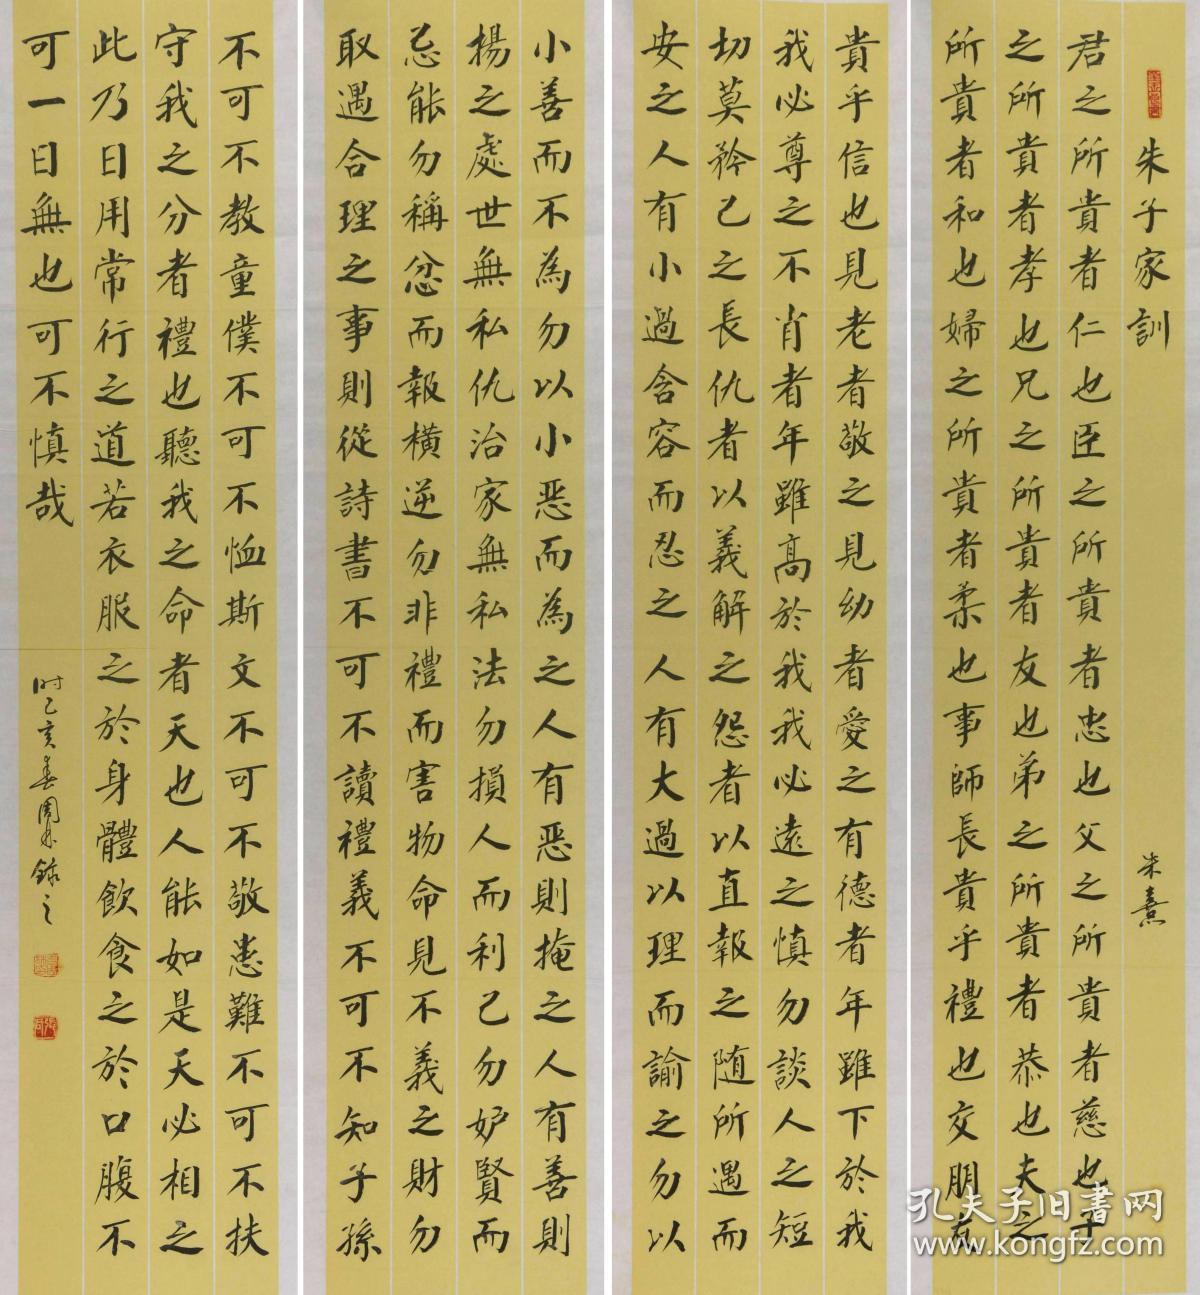 朱子家訓 朱熹
君之所貴者仁也臣之所貴者忠也父之所貴者慈也子
之所貴者孝也兄之所貴者友也弟之所貴者恭也夫之
所貴者和也婦之所貴者柔也事師長貴乎禮也交朋友
貴乎信也見老者敬之見幼者愛之有德者年雖下於我
我必尊之不肖者年雖高於我我必遠之慎勿談人之短
切莫矜己之長仇者以義解之怨者以直報之随所遇而
安之人有小過含容而忍之人有大過以理而諭之勿以
小善而不為勿以小恶而為之人有恶則掩之人有善則
揚之處世無私仇治家無私法勿損人而利己勿妒賢而
忌能勿稱忿而報横逆勿非禮而害物命見不義之財勿
取遇合理之事則從詩書不可不讀禮義不可不知子孫
不可不教童僕不可不恤斯文不可不敬患難不可不扶
守我之分者禮也聽我之命者天也人能如是天必相之
此乃日用常行之道若衣服之於身體飲食之於口腹不
可一日無也可不慎哉
时己亥春周錄之
孔夫子旧书网
www.kongfz.com